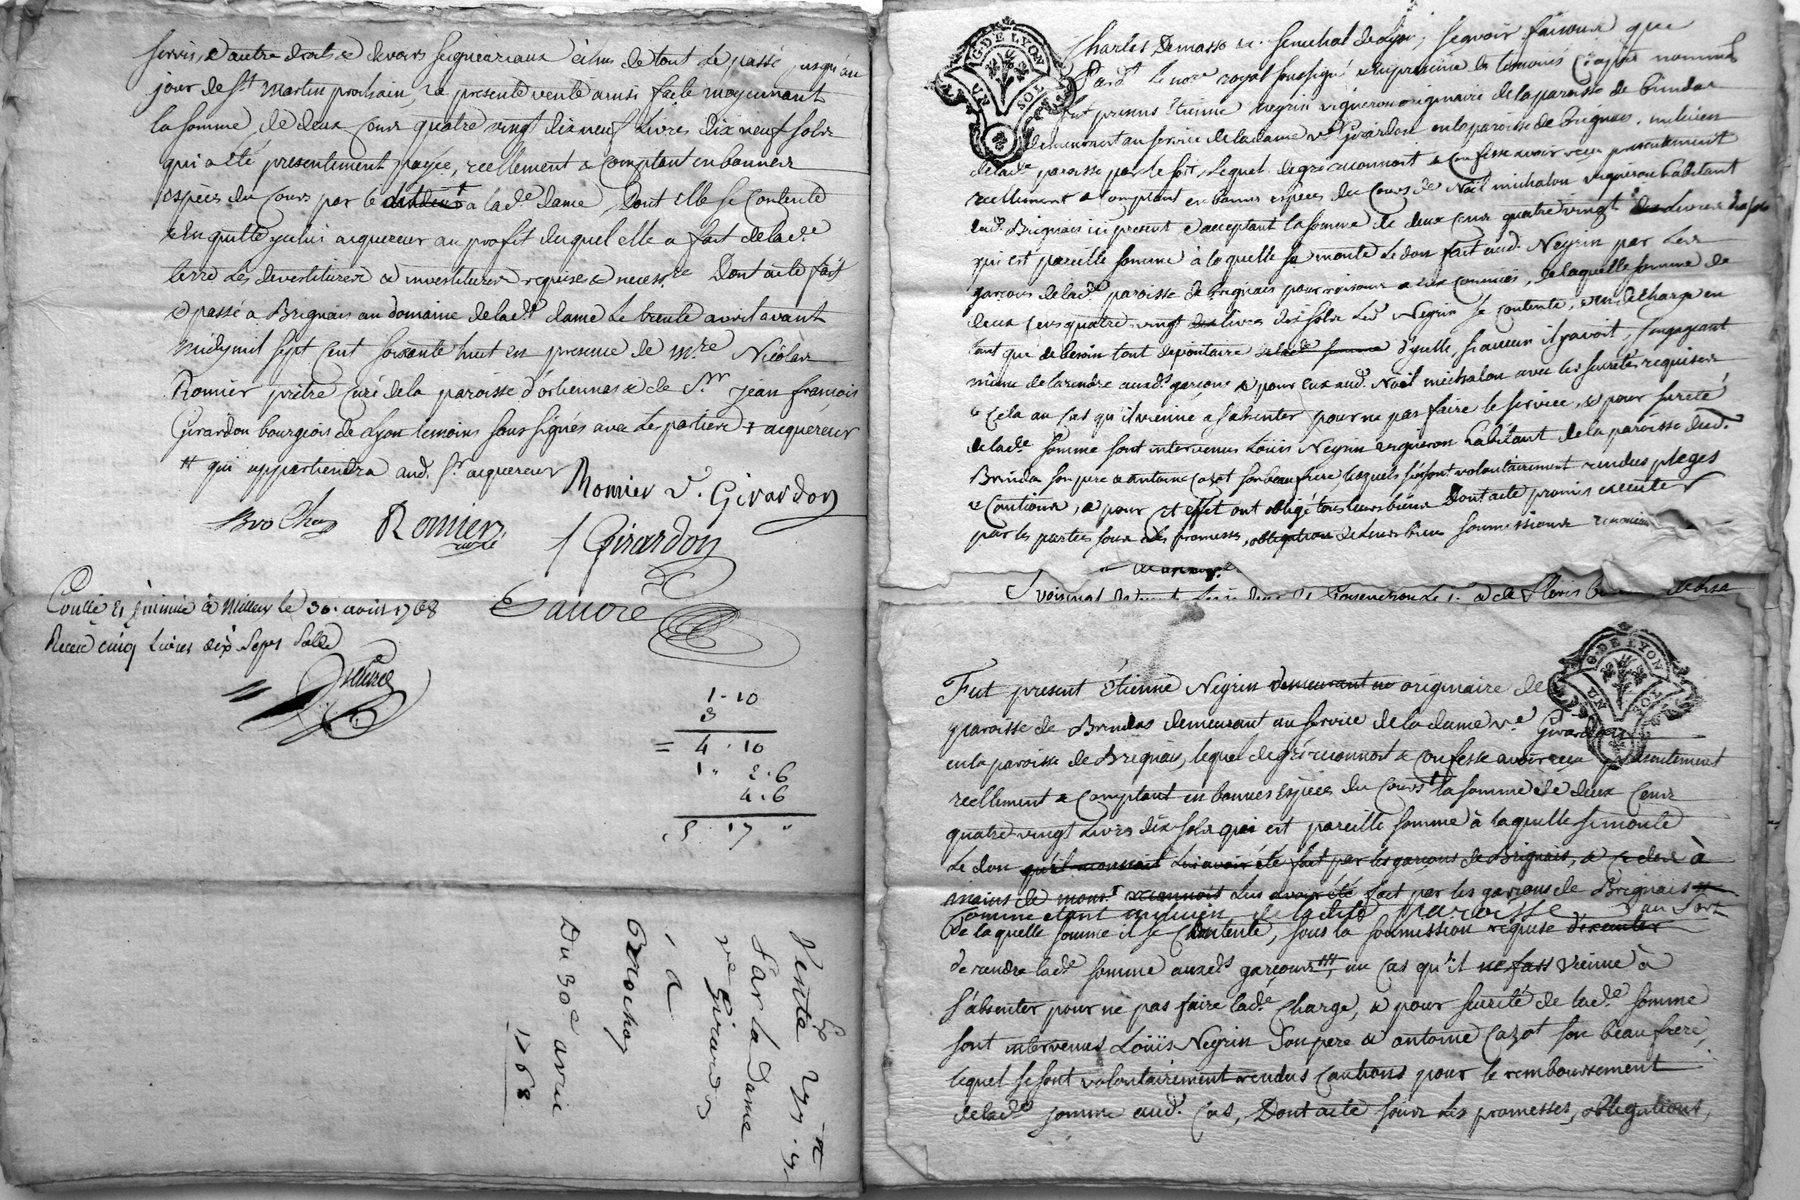 servis, & autre droits & devoirs seigneuriaux échus de tout le passé jusqu'au
jour de St Martin prochain, la presente vente ainsi faite moyennant
la somme de deux Cent quatre vingt dix neuf Livres dix neuf sols
qui a été presentement payée, reellement & Comptant en bonnes
espèces du Cours par le à lade dame, Dont elle se Contente
& en quitte acquereur au profit duquel elle a fait de lade
terre Les devestitures & investitures requises & necessres Dont acte fait
& passé à Brignais au domaine de lade dame Le trente avril avant
midy mil sept Cent soixante huit en presence de mre Nicolas
Romier prêtre Curé de la paroisse d'orliennas & de Sr jean françois
Girardon bourgeois de Lyon temoins sous signés avec Les parties & acquereur
# qui appartiendra aud. Sr acquereur
Romier v. Girardon
Brochay Romier curé
f Girardon
Sauore
à Millery le 30. avril 1768
Recu cinq Livres dix Sept Sols
1 . 10
3
= 4 . 10
1 " 2 . 6
4 . 6
5 . 17 "
Vente
Par la Dame
ve Girardon
à
Brochay
Du 30e avril
1768
G. DE LYON
UN SOL
Charles De masso &c. senechal de Lyon, sçavoir faisons que
Pardt le nore royal soussigné & en presence des temoins Cy après nommés
fut present Etienne Negrin vigneron originaire de la paroisse de Brindas
demeurant au service de la dame ve Girardon en la paroisse de Brignais, milicien
de lade paroisse par le sort, Lequel de gré reconnoit & Confesse avoir reçu presentement
reellement & Comptant en bonnes espèces du Cours de Noël michalon vigneron habitant
aud. Brignais ici present & acceptant la somme de deux Cent quatre vingt Livres dix sols
qui est pareille somme à laquelle se monte Le don fait aud. Negrin par Les
garçons de lade paroisse de Brignais pour raison, de laquelle somme de
deux Cens quatre vingt livres dix sols Led. Negrin se Contente, & en decharge en
tant que de besoin tout depositaire d'icelle, si aucun il y avoit, s'engageant
même de la rendre auxds garçons & pour eux aud. Noël michalon avec les suretés requises
& Cela au Cas qu'il vienne a s'absenter pour ne pas faire le service, & pour sureté
de lade somme sont intervenus Louis Negrin vigneron habitant de la paroisse dud.
Brindas son pere & antoine Cazot son beau frere, lesquels se sont volontairement rendus pleges
& Cautions, & pour cet effet ont obligé tous leurs biens Dont acte promis executer
par les parties sous Les promesses, obligations de leurs biens soumissions
G. DE LYON
UN SOL
Fut present étienne Negrin demeurant originaire de
paroisse de Brindas demeurant au service de la dame ve Girardon
en la paroisse de Brignais, lequel de gré reconnoit & Confesse avoir reçu presentement
reellement & Comptant en bonnes espèces du Cours la somme de deux Cens
quatre vingt Livres dix sols qui est pareille somme à laquelle se monte
Le don Lui avoir été fait par les garçons de Brignais, à
mains de Lui avoir été fait par les garçons de Brignais #
Comme etant milicien de ladite paroisse au sort
De laquelle somme il se Contente, sous la soumission requise
de rendre lade somme auxds garçons ###, au Cas qu'il ne fass vienne à
s'absenter pour ne pas faire lade Charge, & pour sureté de lade somme
sont intervenus Loüis Negrin son pere & antoine Cazot son beau frere,
lequel se sont volontairement rendus Cautions pour le remboursement
de lade somme aud. Cas, Dont acte sous Les promesses, obligations,